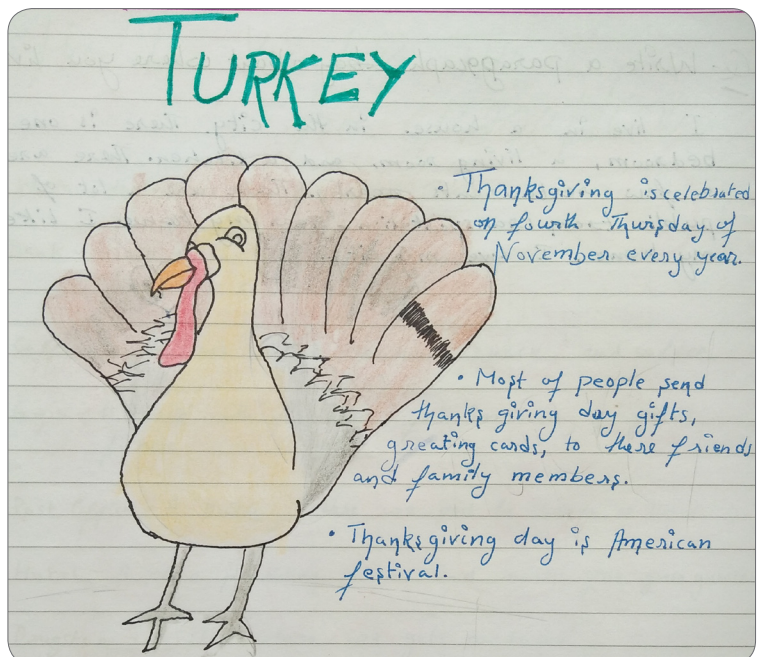 TURKEY
• Thanksgiving is celebrated
on fourth Thursday of
November every year.
• Most of people send
thanks giving day gifts,
greating cards, to there friends
and family members.
• Thanksgiving day is American
festival.